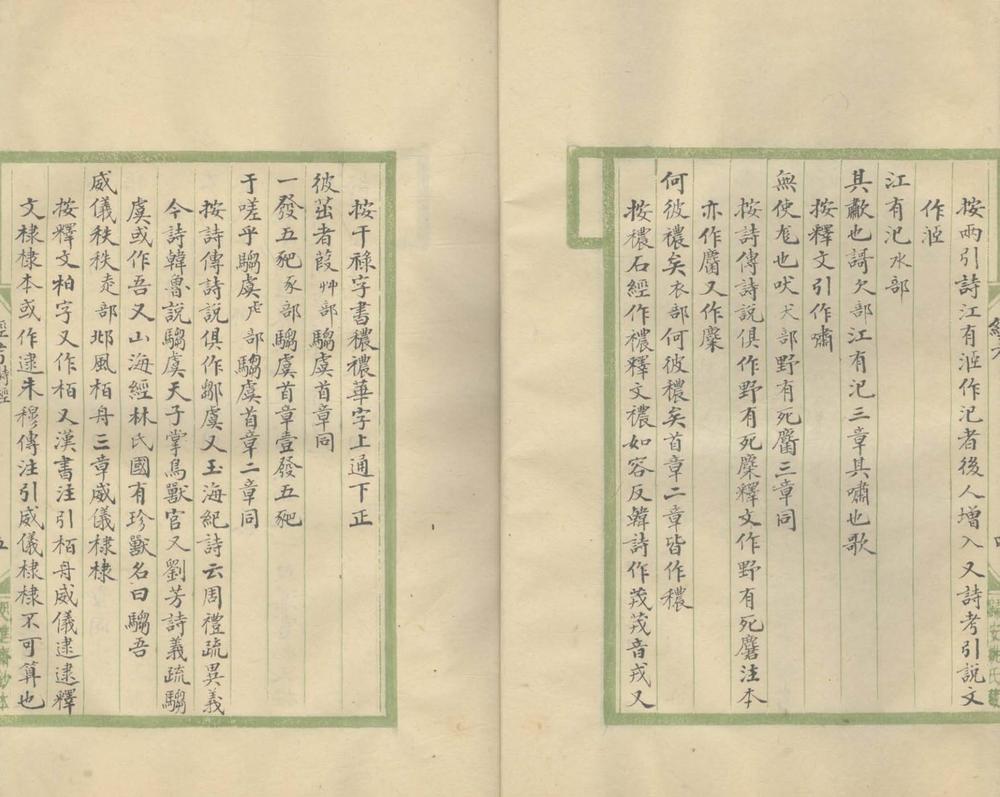 按兩引詩江有洍作汜者後人增入又詩考引說文
作洍
江有汜水部
其歗也謌欠部江有汜三章其嘯也歌
按釋文引作嘯
無使尨也吠犬部野有死麕三章同
按詩傳詩說俱作野有死麇釋文作野有死麏注本
亦作麕又作麇
何彼襛矣衣部何彼穠矣首章二章皆作穠
按襛石經作穠釋文襛如容反韓詩作茙茙音戎又
按干祿字書穠襛華字上通下正
彼茁者葭艸部騶虞首章同
一發五豝豕部騶虞首章壹發五豝
于嗟乎騶虞虍部騶虞首章二章同
按詩傳詩說俱作鄒虞又玉海紀詩云周禮疏異義
今詩韓魯說騶虞天子掌鳥獸官又劉芳詩義疏騶
虞或作吾又山海經林氏國有珍獸名曰騶吾
威儀秩秩走部邶風栢舟三章威儀棣棣
按釋文柏字又作栢又漢書注引栢舟威儀逮逮釋
文棣棣本或作逮朱穆傳注引威儀棣棣不可算也
五